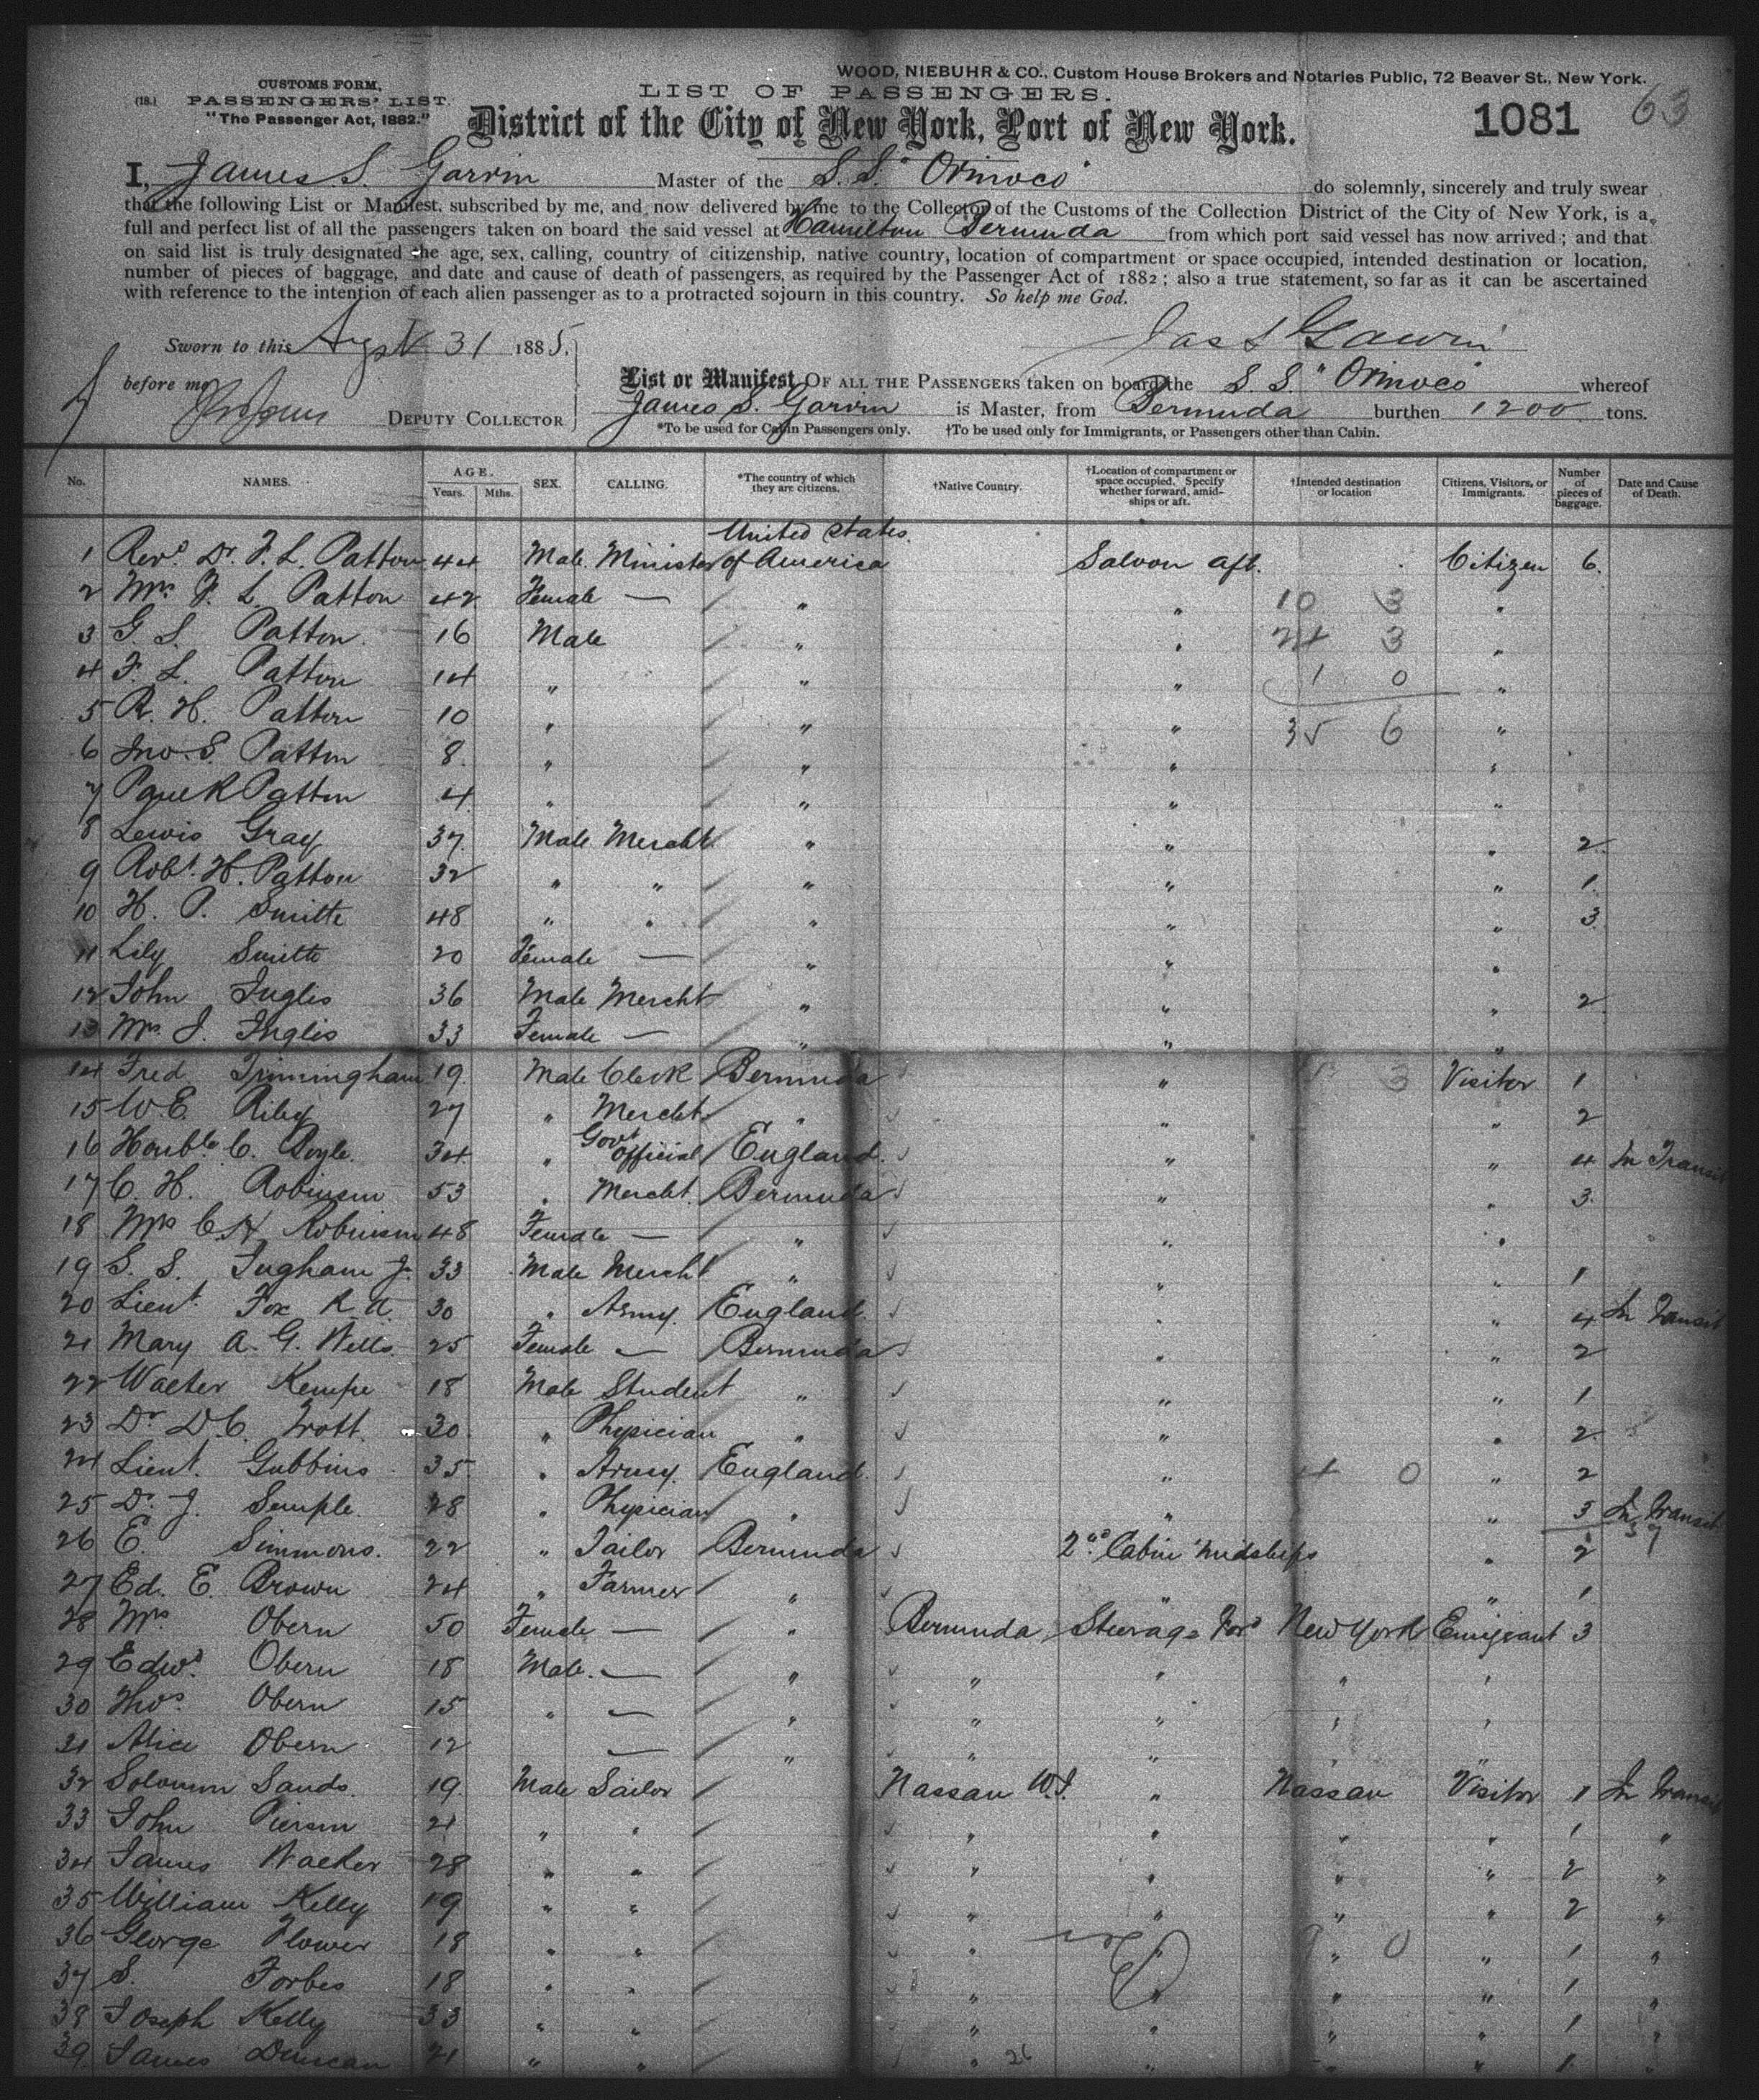 WOOD, NIEBUHR & CO., Custom House Brokers and Notaries Public, 72 Beaver St., New York.
CUSTOMS FORM,
(18.) PASSENGERS' LIST.
"The Passenger Act, 1882."
LIST OF PASSENGERS.
District of the City of New York, Port of New York.
1081 63
I, James S. Garvin Master of the S.S. "Orinoco" do solemnly, sincerely and truly swear
that the following List or Manifest, subscribed by me, and now delivered by me to the Collector of the Customs of the Collection District of the City of New York, is a
full and perfect list of all the passengers taken on board the said vessel at Hamilton Bermuda from which port said vessel has now arrived; and that
on said list is truly designated the age, sex, calling, country of citizenship, native country, location of compartment or space occupied, intended destination or location,
number of pieces of baggage, and date and cause of death of passengers, as required by the Passenger Act of 1882; also a true statement, so far as it can be ascertained
with reference to the intention of each alien passenger as to a protracted sojourn in this country. So help me God.
Sworn to this Augst 31 1885.
Jas S Garvin
before me
DEPUTY COLLECTOR
List or Manifest OF ALL THE PASSENGERS taken on board the S.S. "Orinoco" whereof
James S. Garvin is Master, from Bermuda burthen 1200 tons.
*To be used for Cabin Passengers only. †To be used only for Immigrants, or Passengers other than Cabin.
No. NAMES. AGE. Years. Mths. SEX. CALLING. *The country of which they are citizens. †Native Country. †Location of compartment or space occupied. Specify whether forward, amidships or aft. †Intended destination or location Citizens, Visitors, or Immigrants. Number of pieces of baggage. Date and Cause of Death.
United States
1 Revd. Dr. F. L. Patton 44 Male Minister of America Saloon aft. Citizen 6.
2 Mrs F. L. Patton 42 Female — " " 10 3 "
3 G S. Patton 16 Male " " 24 3 "
4 F. L. Patton 14 " " " 1 0 "
5 R. H. Patton 10 " " " 35 6 "
6 Jno. S. Patton 8 " " " "
7 Paul R Patton 4 " " " "
8 Lewis Gray 37 Male Mercht " " " 2
9 Robt. H. Patton 32 " " " " " 1
10 H. P. Smith 48 " " " " " 3
11 Lily Smith 20 Female — " " "
12 John Inglis 36 Male Mercht " " " 2
13 Mrs J. Inglis 33 Female — " " "
14 Fred Trimingham 19 Male Clerk Bermuda " 3 Visitor 1
15 W E Riley 27 " Mercht " " " 2
16 Honble C. 34 " Govt official England " " 4 In Transit
17 C. H. Robinson 53 " Mercht. Bermuda " " 3
18 Mrs C. H. Robinson 48 Female — " " "
19 S. S. Ingham Jr. 33 Male Mercht " " " 1
20 Lieut. Fox R.A. 30 " Army England " " 4 In Transit
21 Mary A. G. Wells 25 Female — Bermuda " " 2
22 Walter Kempe 18 Male Student " " " 1
23 Dr D.C. Trott 30 " Physician " " " 2
24 Lieut. Gubbins 35 " Army England " 4 0 " 2
25 Dr. J. Semple 28 " Physician " " " 5 In Transit
37
26 E. Simmons. 22 " Tailor Bermuda 2nd Cabin midships " 2
27 Ed. E. Brown 24 " Farmer " " " 1
28 Mrs Obern 50 Female — " Bermuda Steerage For'd New York Emigrant 3
29 Edwd. Obern 18 Male — " " " " "
30 Thos Obern 15 " — " " " " "
31 Alice Obern 12 — " " " " "
32 Solomon Sands 19 Male Sailor Nassau W.I. " Nassau Visitor 1 In Transit
33 John Pierson 21 " " " " " " 1 "
34 James Walker 28 " " " " " " 2 "
35 William Kelly 19 " " " " " " 2 "
36 George Flower 18 " " " " " 0 " 1 "
37 S. Forbes 18 " " " " " " 1 "
38 Joseph Kelly 33 " " " " " " 1 "
39 James Duncan 21 " " " 26 " " " 1 "